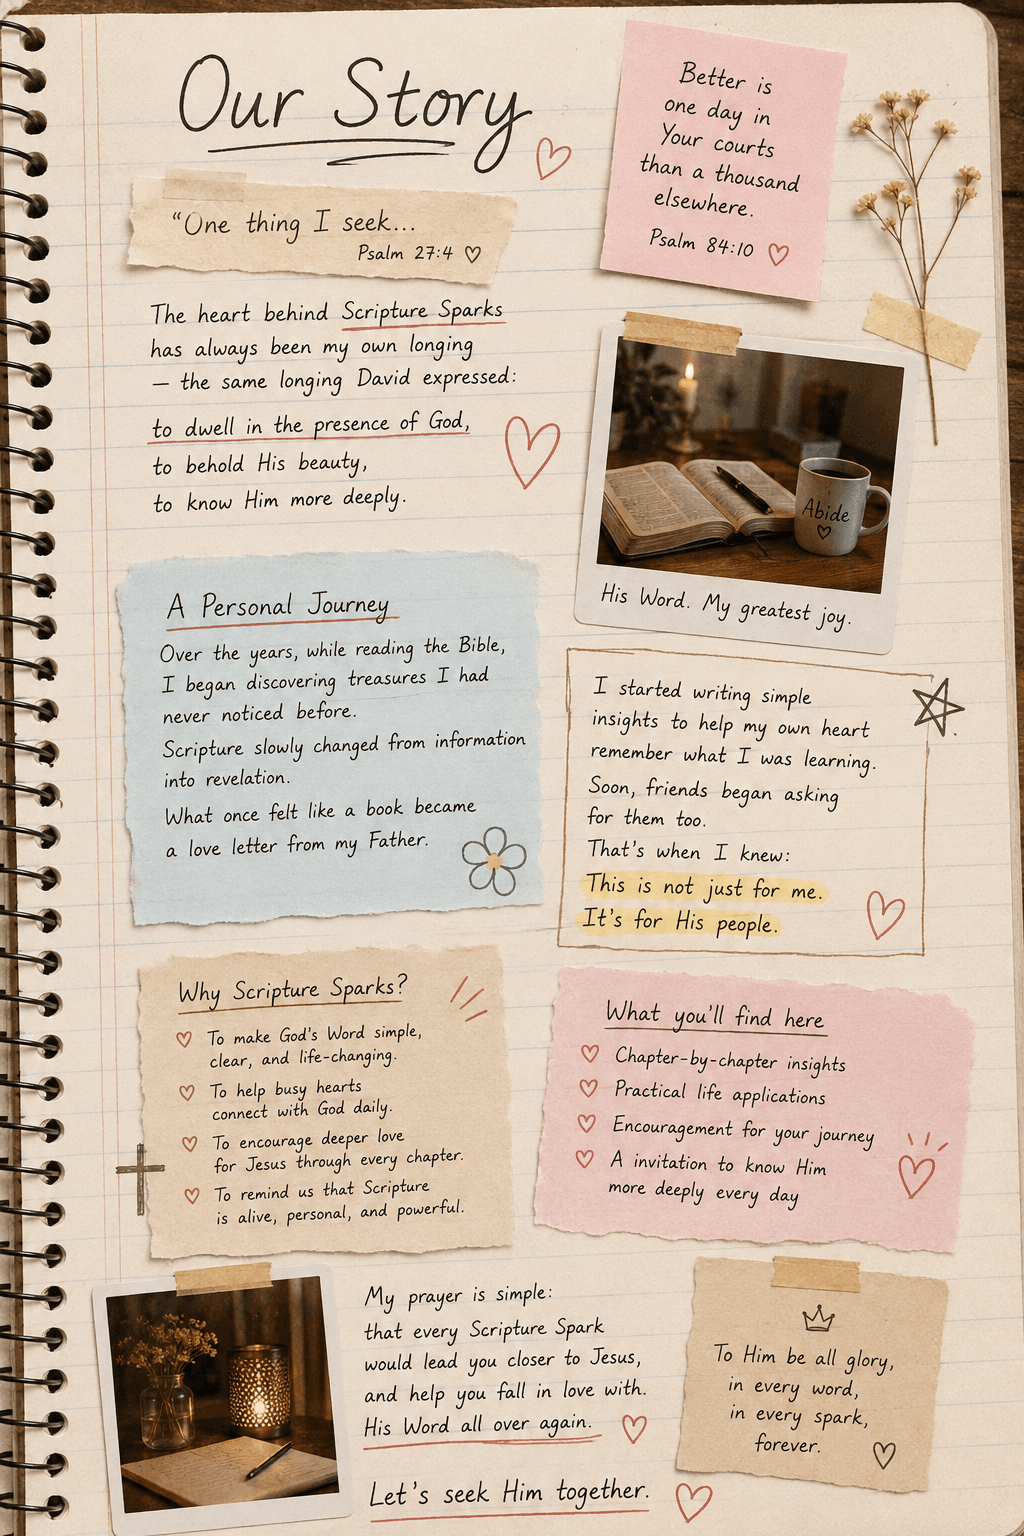 Our Story
"One thing I seek...
Psalm 27:4
Better is
one day in
Your courts
than a thousand
elsewhere.
Psalm 84:10
The heart behind Scripture Sparks
has always been my own longing
— the same longing David expressed:
to dwell in the presence of God,
to behold His beauty,
to know Him more deeply.
Abide
His Word. My greatest joy.
A Personal Journey
Over the years, while reading the Bible,
I began discovering treasures I had
never noticed before.
Scripture slowly changed from information
into revelation.
What once felt like a book became
a love letter from my Father.
I started writing simple
insights to help my own heart
remember what I was learning.
Soon, friends began asking
for them too.
That's when I knew:
This is not just for me.
It's for His people.
Why Scripture Sparks?
To make God's Word simple,
clear, and life-changing.
To help busy hearts
connect with God daily.
To encourage deeper love
for Jesus through every chapter.
To remind us that Scripture
is alive, personal, and powerful.
What you'll find here
Chapter-by-chapter insights
Practical life applications
Encouragement for your journey
A invitation to know Him
more deeply every day
My prayer is simple:
that every Scripture Spark
would lead you closer to Jesus,
and help you fall in love with.
His Word all over again.
Let's seek Him together.
To Him be all glory,
in every word,
in every spark,
forever.